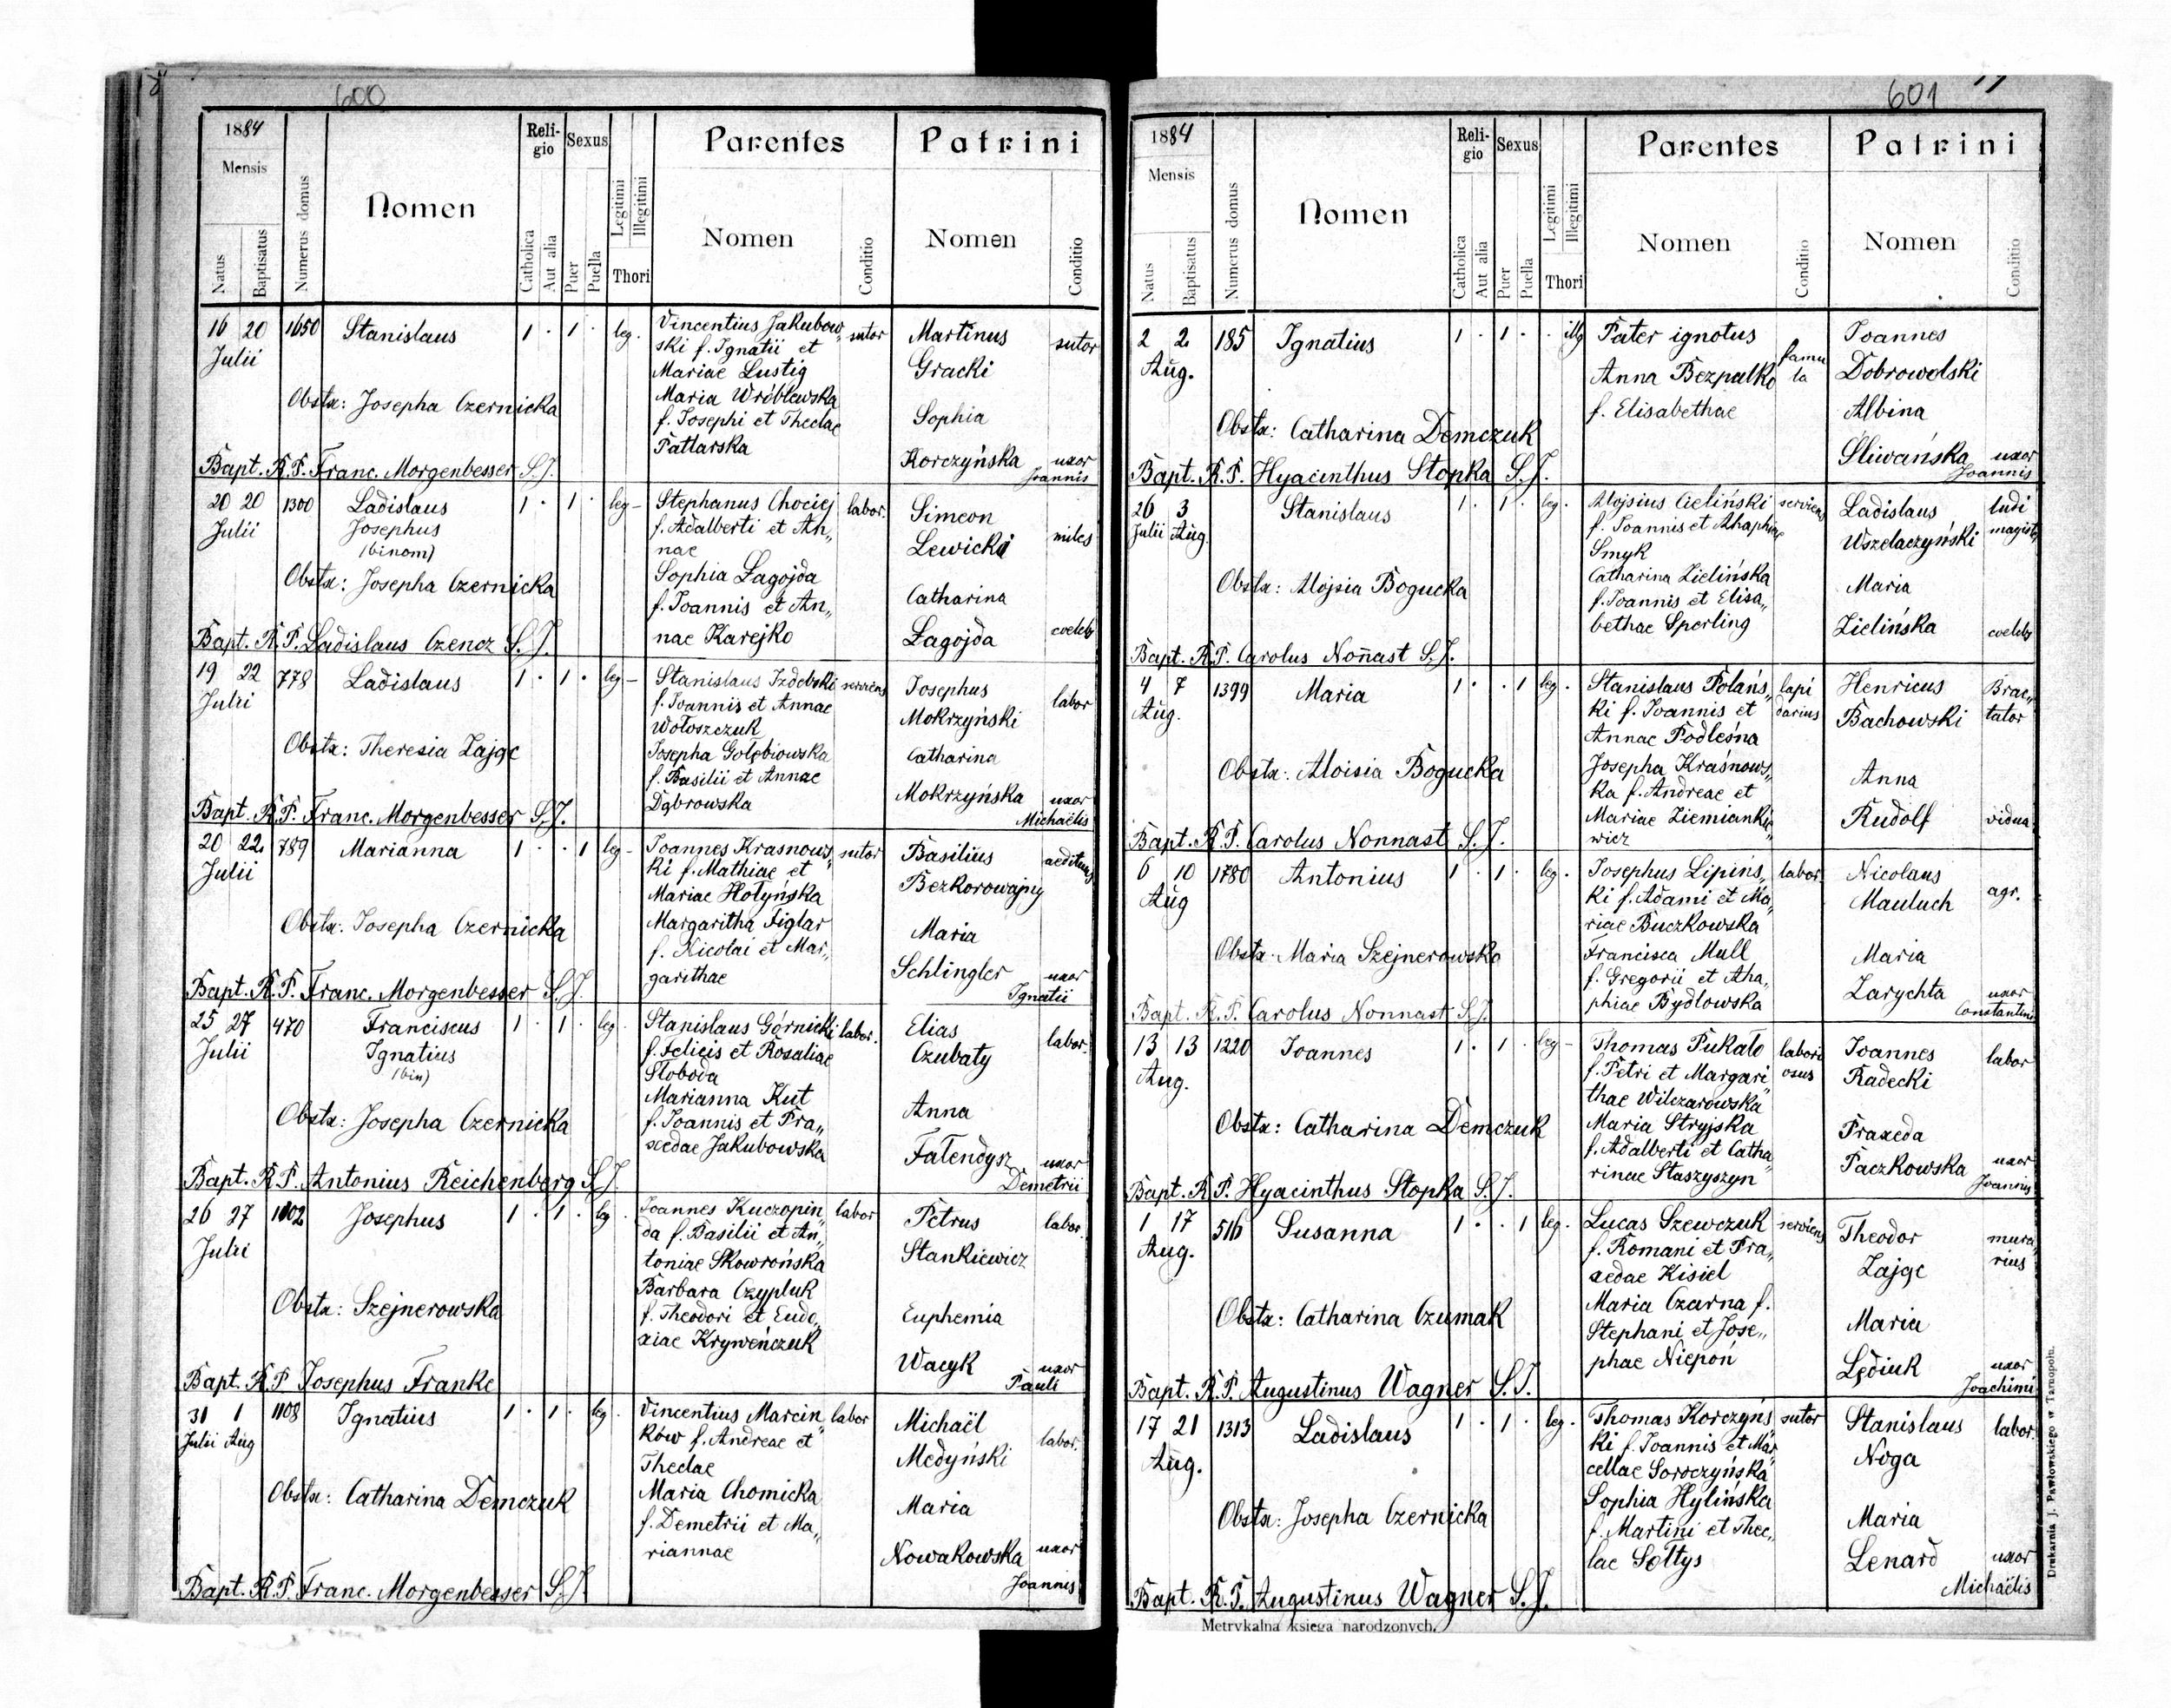 600
1884
Mensis
Natus
Baptisatus
Numerus domus
Nomen
Religio
Catholica
Aut alia
Sexus
Puer
Puella
Legitimi
Illegitimi
Thori
Parentes
Nomen
Conditio
Patrini
Nomen
Conditio
16 20 1650 Stanislaus 1 · 1 · leg. Vincentius Jakubow„ sutor Martinus sutor
Julii ski f. Ignatii et Gracki
Mariae Lustig
Maria Wróblewska
Obstx: Josepha Czernicka f. Josephi et Theclae Sophia
Patlarska Korczyńska uxor
Bapt. R.P. Franc. Morgenbesser S.J. Joannis
20 20 1300 Ladislaus 1 · 1 · leg – Stephanus Chociej labor. Simeon miles
Julii Josephus f. Adalberti et An„ Lewicki
(binom) nae
Obstx: Josepha Czernicka Sophia Łagojda Catharina
f. Joannis et An„
Bapt. R.P. Ladislaus Czencz S.J. nae Karejko Łagojda coelebs
19 22 778 Ladislaus 1 · 1 · leg – Stanislaus Izdebski serviens Josephus labor
Julii f. Joannis et Annae Mokrzyński
Wołoszczuk
Obstx: Theresia Zając Josepha Gołębiowska Catharina
f. Basilii et Annae
Dąbrowska Mokrzyńska uxor
Bapt. R.P. Franc. Morgenbesser S.J. Michaëlis
20 22 789 Marianna 1 · · 1 leg – Joannes Krasnows„ sutor Basilius aedituus
Julii ki f. Mathiae et Bezkorowajny
Mariae Hołyńska
Obstx: Josepha Czernicka Margaritha Figlar Maria
f. Nicolai et Mar„
garithae Schlingler uxor
Bapt. R.P. Franc. Morgenbesser S.J. Ignatii
25 27 470 Franciscus 1 · 1 · leg. Stanislaus Górnicki labor. Elias labor.
Julii Ignatius f. Felicis et Rosaliae Czubaty
(bin) Słoboda
Obstx: Josepha Czernicka Marianna Kut Anna
f. Joannis et Pra„
xedae Jakubowska Fałendysz uxor
Bapt. R.P. Antonius Reichenberg S.J. Demetrii
26 27 1102 Josephus 1 · 1 · leg. Joannes Kuczopin„ labor Petrus labor.
Julii da f. Basilii et An„ Stankiewicz
toniae Skowrońska
Obstx: Szejnerowska Barbara Czypluk Euphemia
f. Theodori et Eudo„
xiae Kryweńczuk Wacyk uxor
Bapt. R.P. Josephus Franke Pauli
31 1 1108 Ignatius 1 · 1 · leg. Vincentius Marcin„ labor Michaël labor.
Julii Aug ków f. Andreae et Medyński
Theclae
Obstx: Catharina Demczuk Maria Chomicka Maria
f. Demetrii et Ma„
riannae Nowakowska uxor
Bapt. R.P. Franc. Morgenbesser S.J. Joannis
601
1884
Mensis
Natus
Baptisatus
Numerus domus
Nomen
Religio
Catholica
Aut alia
Sexus
Puer
Puella
Legitimi
Illegitimi
Thori
Parentes
Nomen
Conditio
Patrini
Nomen
Conditio
2 2 185 Ignatius 1 · 1 · · illg Pater ignotus Joannes
Aug. Anna Bezpalko famula Dobrowolski
f. Elisabethae Albina
Obstx: Catharina Demczuk
Śliwańska uxor
Bapt. R.P. Hyacinthus Stopka S.J. Joannis
26 3 Stanislaus 1 · 1 · leg. Alojsius Cieliński serviens Ladislaus ludi
Julii Aug. f. Joannis et Ahaphiae Wszelaczyński magistr
Smyk
Obstx: Alojsia Bogucka Catharina Zielińska Maria
f. Joannis et Elisa„
bethae Sperling Zielińska coelebs
Bapt. R.P. Carolus Non̄ast S.J.
4 7 1399 Maria 1 · · 1 leg. Stanislaus Polańs„ lapi Henricus Brac„
Aug. ki f. Joannis et darius Bachowski tator
Annae Podleśna
Obstx: Aloisia Bogucka Josepha Kraśnows„ Anna
ka f. Andreae et
Mariae Ziemiankie„ Rudolf vidua
Bapt. R.P. Carolus Nonnast S.J. wicz
6 10 1780 Antonius 1 · 1 · leg. Josephus Lipińs„ labor. Nicolaus agr.
Aug ki f. Adami et Ma„ Mauluch
riae Buczkowska
Obstx: Maria Szejnerowska Francisca Mull Maria
f. Gregorii et Aha„
phiae Bydłowska Zarychta uxor
Bapt. R.P. Carolus Nonnast S.J. Constantini
13 13 1220 Joannes 1 · 1 · leg – Thomas Pukało labori Joannes labor
Aug. f. Petri et Margari„ osus Radecki
thae Wilczarowska
Obstx: Catharina Demczuk Maria Stryjska Praxeda
f. Adalberti et Catha„
rinae Staszyszyn Paczkowska uxor
Bapt. R.P. Hyacinthus Stopka S.J. Joannis
1 17 516 Susanna 1 · · 1 leg. Lucas Szewczuk serviens Theodor mura„
Aug. f. Romani et Pra„ Zając rius
xedae Kisiel
Obstx: Catharina Czumak Maria Czarna f. Maria
Stephani et Jose„
phae Niepoń Lędiuk uxor
Bapt. R.P. Augustinus Wagner S.J. Joachimi
17 21 1313 Ladislaus 1 · 1 · leg. Thomas Korczyńs„ sutor Stanislaus labor.
Aug. ki f. Joannis et Mar„ Noga
cellae Soroczyńska
Obstx: Josepha Czernicka Sophia Hylińska Maria
f. Martini et Thec„
lae Sołtys Lenard uxor
Bapt. R.P. Augustinus Wagner S.J. Michaëlis
Metrykalna księga narodzonych.
Drukarnia J. Pawłowskiego w Tarnopolu.